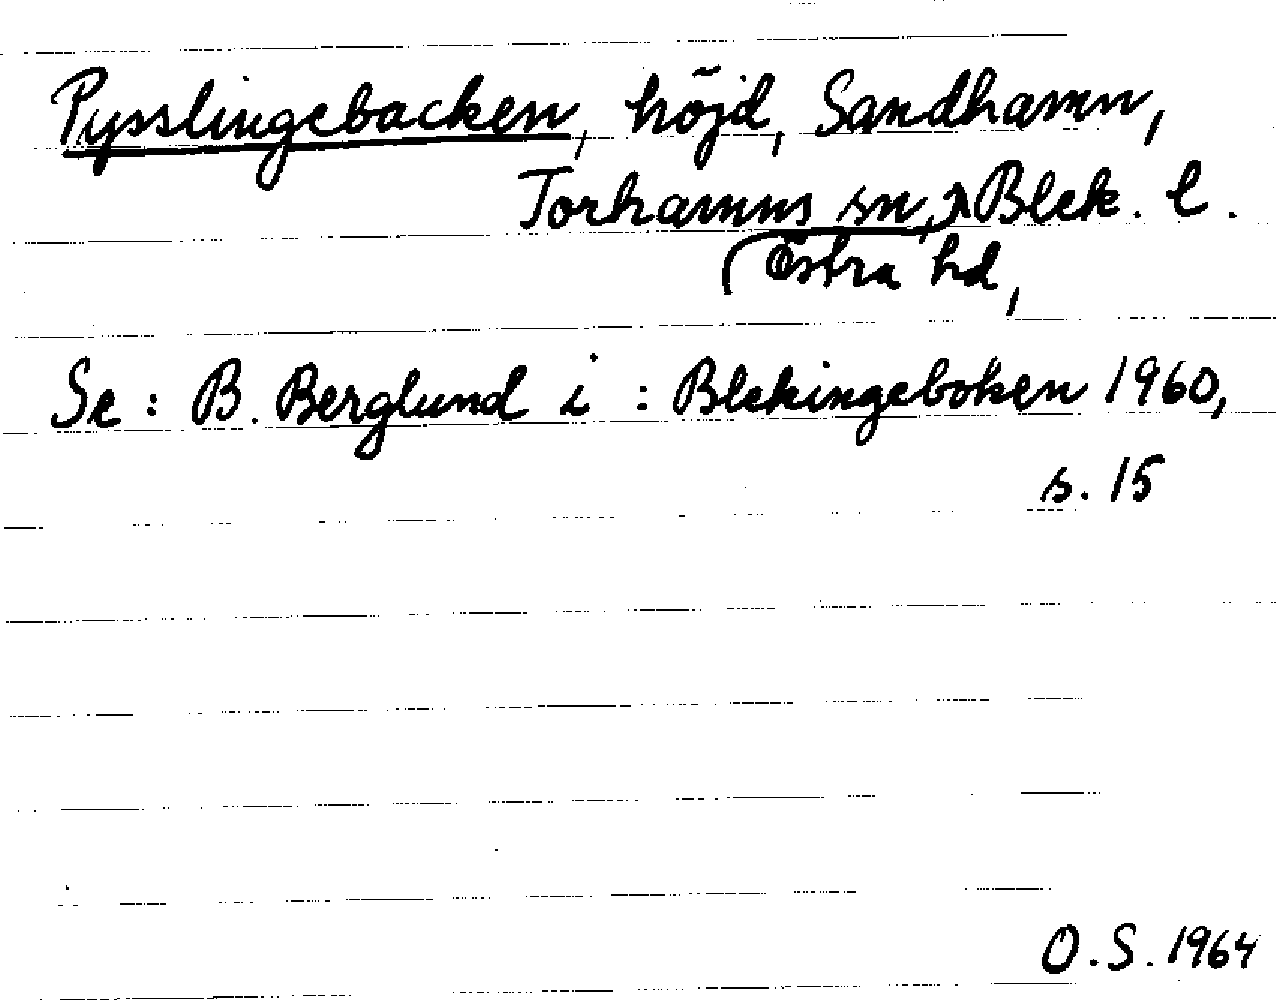 Pysslingebacken, höjd, Sandhamn,
Torhamns sn, Blek. l.
Östra hd,
Se: B. Berglund i: Blekingeboken 1960,
s. 15
O.S. 1964